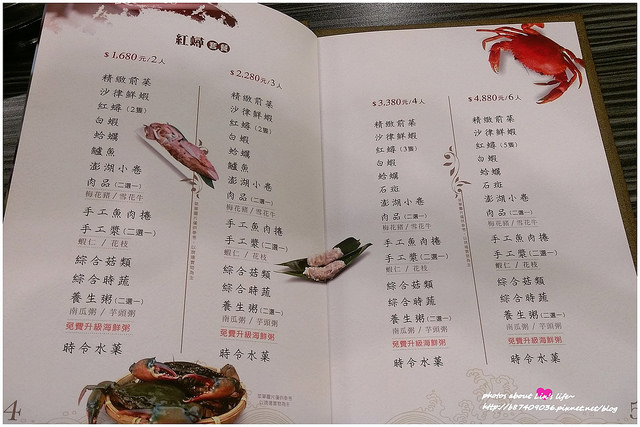 紅蟳套餐
$1,680元/2人
精緻前菜
沙律鮮蝦
紅蟳(2隻)
白蝦
蛤蠣
鱸魚
澎湖小卷
肉品(二選一)
梅花豬/雪花牛
手工魚肉捲
手工漿(二選一)
蝦仁/花枝
綜合菇類
綜合時蔬
養生粥(二選一)
南瓜粥/芋頭粥
免費升級海鮮粥
時令水菓
$2,280元/3人
精緻前菜
沙律鮮蝦
紅蟳(2隻)
白蝦
蛤蠣
鱸魚
澎湖小卷
肉品(二選一)
梅花豬/雪花牛
手工魚肉捲
手工漿(二選一)
蝦仁/花枝
綜合菇類
綜合時蔬
養生粥(二選一)
南瓜粥/芋頭粥
免費升級海鮮粥
時令水菓
4
$3,380元/4人
精緻前菜
沙律鮮蝦
紅蟳(3隻)
白蝦
蛤蠣
石斑
澎湖小卷
肉品(二選一)
梅花豬/雪花牛
手工魚肉捲
手工漿(二選一)
蝦仁/花枝
綜合菇類
綜合時蔬
養生粥(二選一)
南瓜粥/芋頭粥
免費升級海鮮粥
時令水菓
$4,880元/6人
精緻前菜
沙律鮮蝦
紅蟳(5隻)
白蝦
蛤蠣
石斑
澎湖小卷
肉品(二選一)
梅花豬/雪花牛
手工魚肉捲
手工漿(二選一)
蝦仁/花枝
綜合菇類
綜合時蔬
養生粥(二選一)
南瓜粥/芋頭粥
免費升級海鮮粥
時令水菓
5
photos about Lin's life~
http://b87409036.pixnet.net/blog